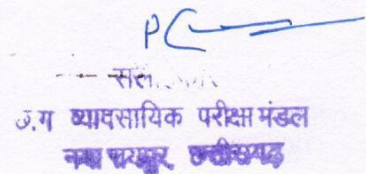 छ.ग व्यापसायिक परीक्षा मंडल
नया रायपुर, छत्तीसगढ़